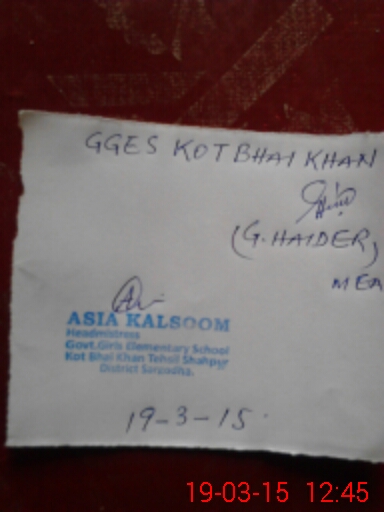 GGES KOT BHAI KHAN
(G. HAIDER)
MEA
ASIA KALSOOM
Headmistress
Govt.Girls Elementary School
Kot Bhai Khan Tehsil Shahpur
District Sargodha.
19-3-15
19-03-15 12:45